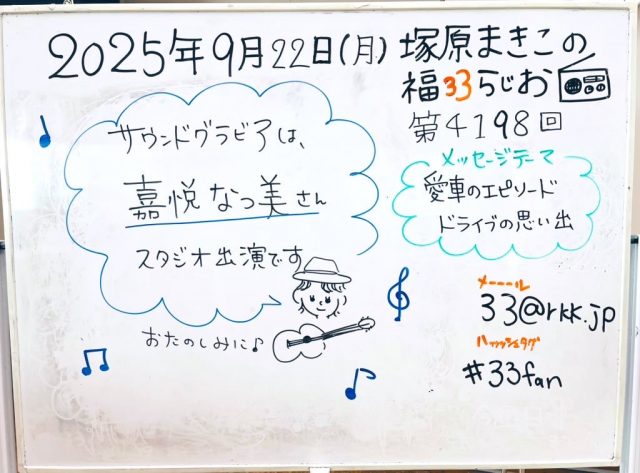 2025年9月22日(月) 塚原まきこの
福33らじお
第4198回
サウンドグラビアは、
嘉悦なつ美さん
スタジオ出演です
おたのしみに♪
メッセージテーマ
愛車のエピソード
ドライブの思い出
メーール
33@rkk.jp
ハッッシュタグ
#33fan